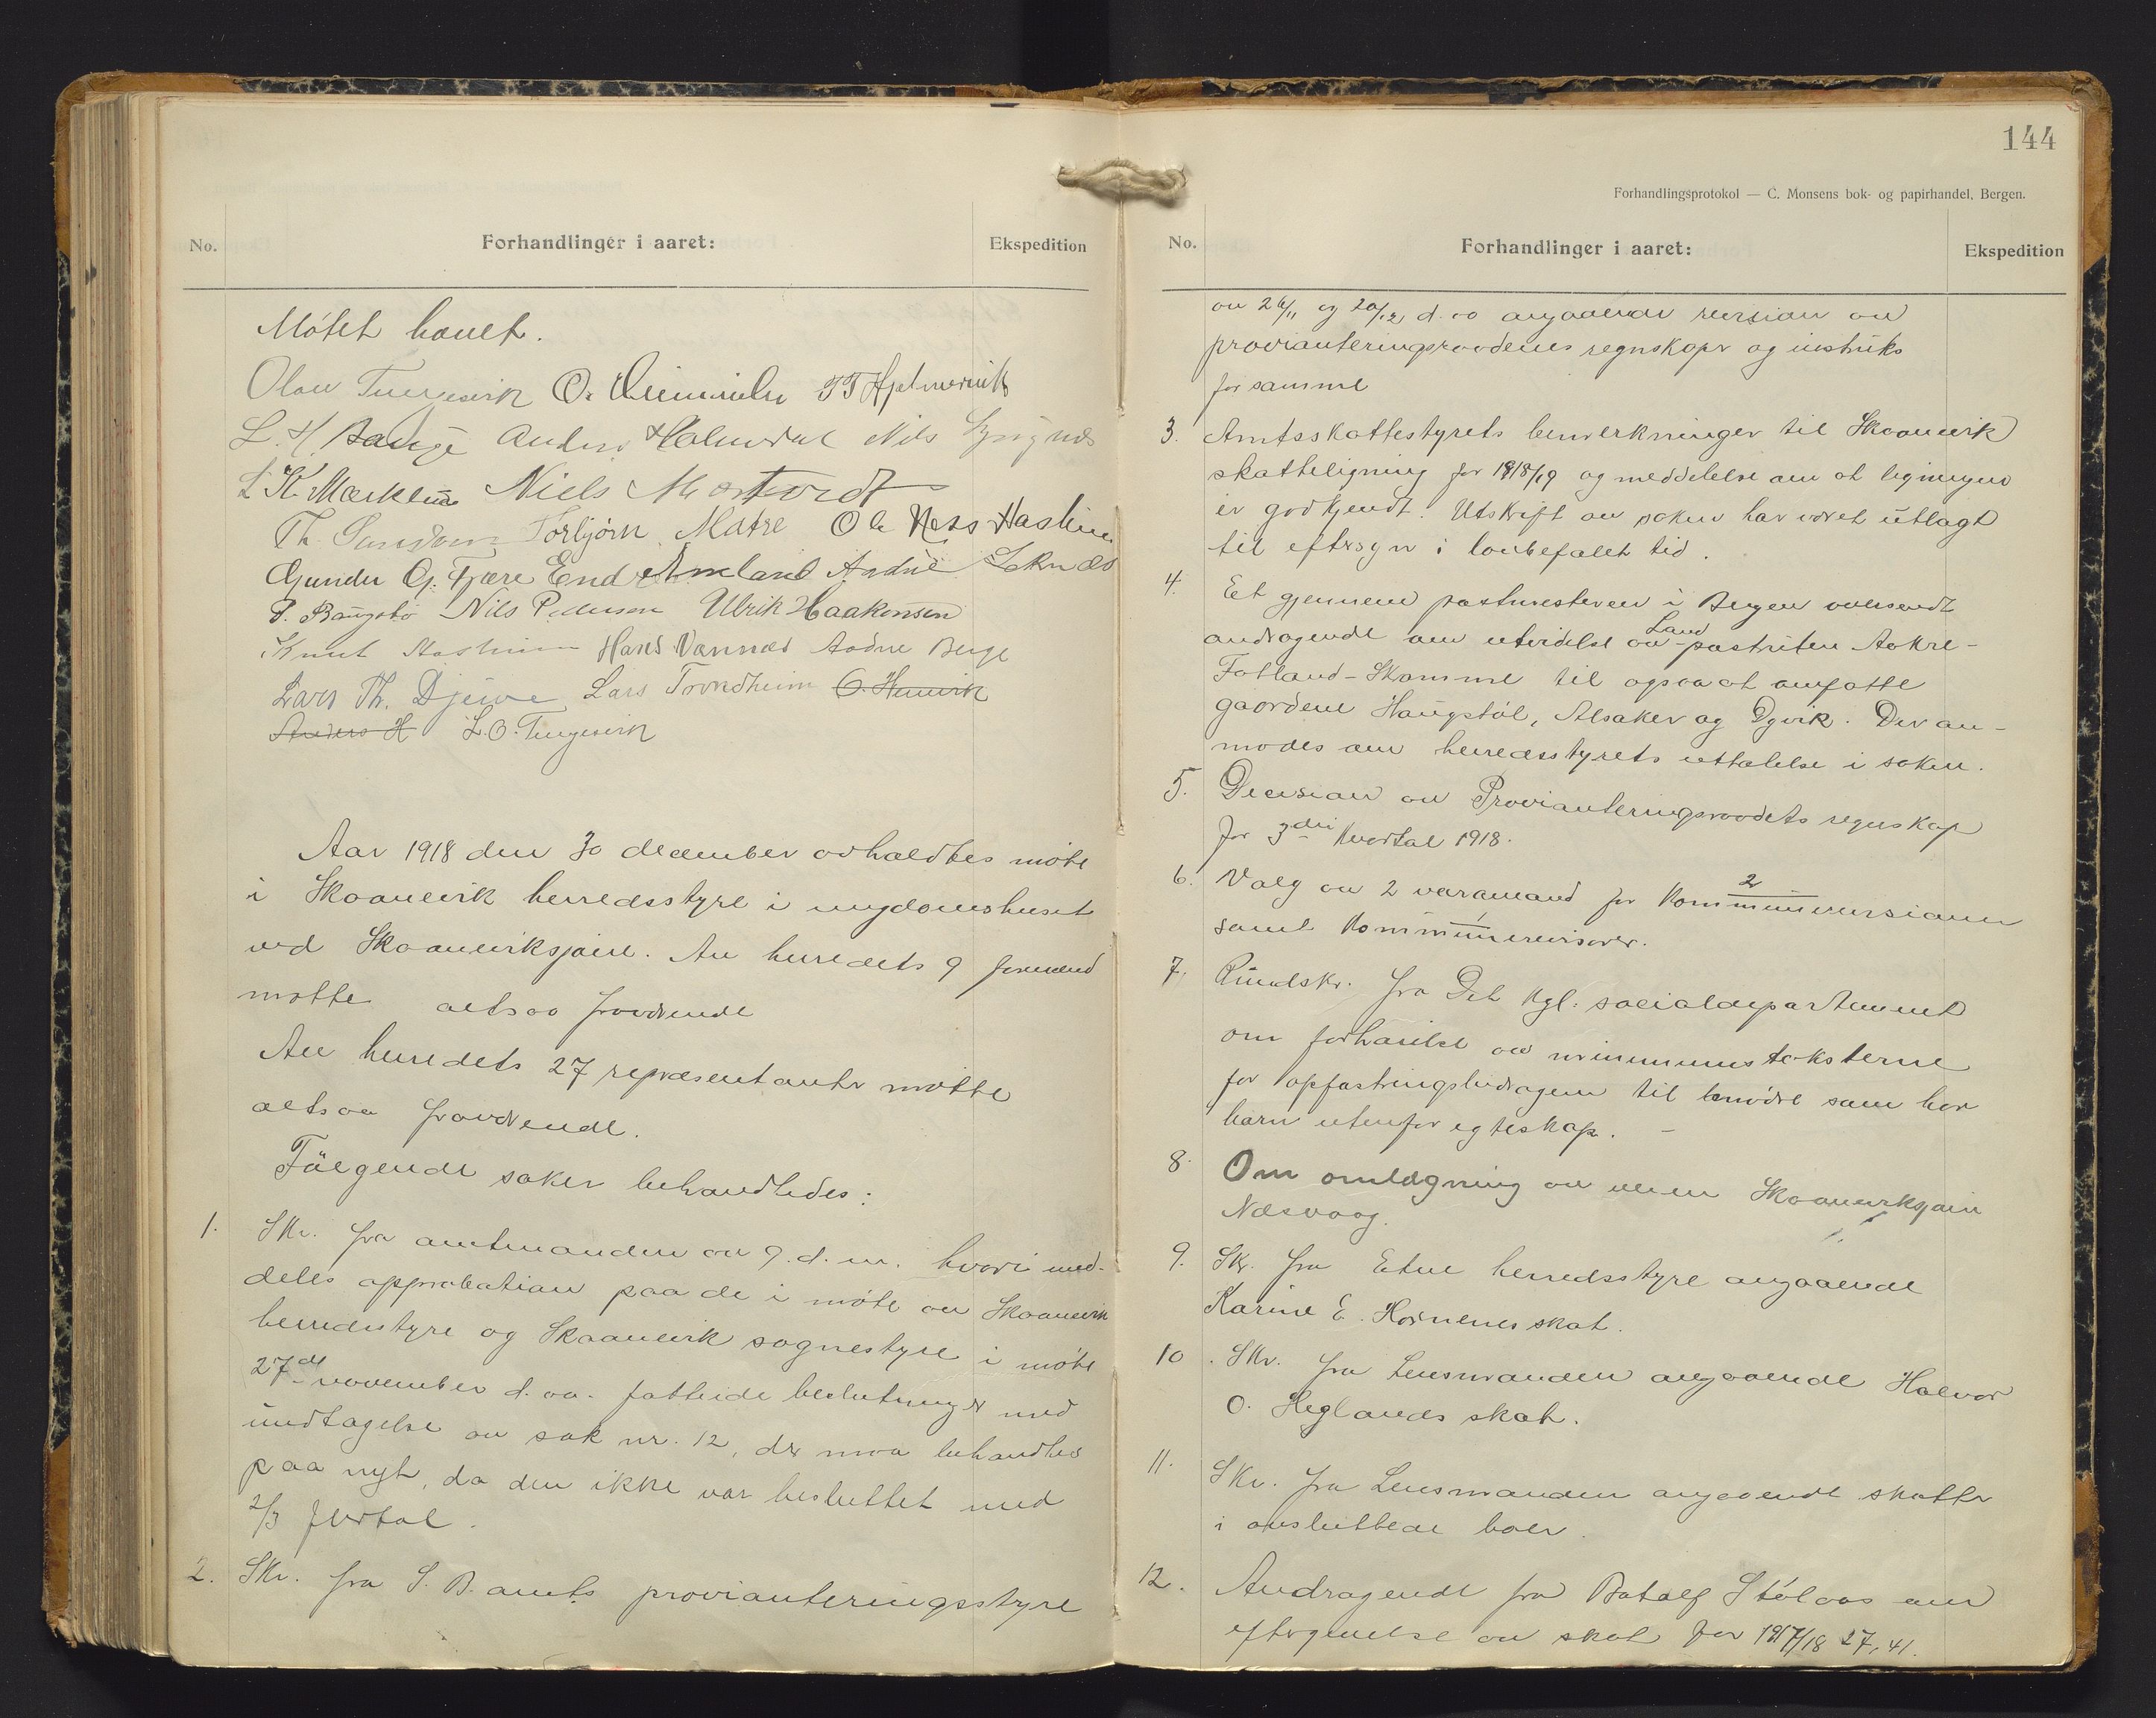 No.
Forhandlinger i aaret:
Ekspedition
Møtet hævet.
Olav O.
L. H. Bauge Anders Holmedal Nils
L K Markhus Niels
Th. Torbjørn Matre Ole Næss
Gunder G. Fjære End Arne Leknæs
P. Baugstø Nils Pedersen Ulrik Haakonsen
Knut Hans Vannes Aadne Berge
Lars Th. Djuve Lars Trondheim
Anders H L. O. Tungesvik
Aar 1918 den 30 december avholdtes møte
i Skaanevik herredsstyre i ungdomshuset
ved Skaaneviksjøen. Av herredets 9 formænd
møtte altsaa fraværende
Av herredets 27 repræsentanter møtte
altsaa fraværende.
Følgende saker behandledes:
1. Skr. fra amtmanden av 9. d. m. hvori med-
deles approbation paa de i møte av Skaanevik
herredsstyre og Skaanevik sognestyre i møte
27de november d. aa. fattede beslutninger med
undtagelse av sak nr. 12, der maa behandles
paa nyt, da den ikke var besluttet med
2/3 flertal.
2. Skr. fra S. B. amts provianteringsstyre
144
Forhandlingsprotokol — C. Monsens bok- og papirhandel, Bergen.
No.
Forhandlinger i aaret:
Ekspedition
av 26/11 og 20/12 d. aa angaaende revision av
provianteringsraadenes regnskaper og instruks
for samme
3. Amtsskattestyrets bemerkninger til Skaanevik
skatteligning for 1918/19 og meddelelse om at ligningen
er godkjendt. Utskrift av saken har været utlagt
til eftersyn i lovbefalet tid.
4. Et gjennem postmesteren i Bergen oversendt
andragende om utvidelse av Land-postruten Aakre-
Fatland-Skamme til ogsaa at omfatte
gaardene Haugstøl, Alsaker og Dyvik. Der an-
modes om herredsstyrets uttalelse i saken.
5. Decision av Provianteringsraadets regnskap
for 3die kvartal 1918.
6. Valg av 2 varamænd for Kommunerevisionen 2
samt Kommunerevisorer. 1
7. Rundskr. fra Det kgl. socialdepartement
om forhøielse av minimumstaksterne
for opfostringsbidragene til mødre som har
barn utenfor egteskap. —
8. Om omlægning av veien Skaaneviksjøen
Næsvaag.
9. Skr. fra Etne herredsstyre angaaende
Karine E. skat.
10. Skr. fra Lensmanden angaaende Halvor
O. Heglands skat.
11. Skr. fra Lensmanden angaaende skatter
i avsluttede boer.
12. Andragende fra Botolf Stølaas om
eftergivelse av skat for 1917/18 27,41.